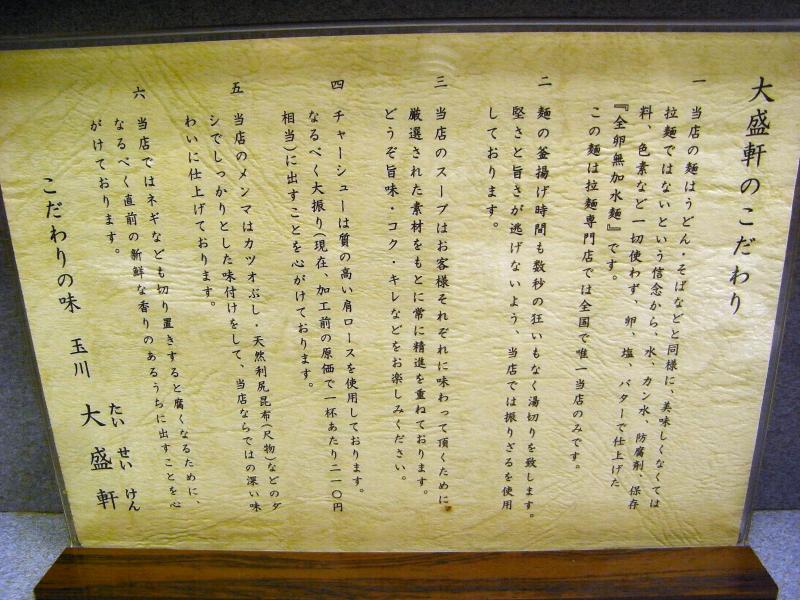 大盛軒のこだわり
一　当店の麺はうどん・そばなどと同様に、美味しくなくては
拉麺ではないという信念から、水、カン水、防腐剤、保存
料、色素など一切使わず、卵、塩、バターで仕上げた
『全卵無加水麺』です。
この麺は拉麺専門店では全国で唯一当店のみです。
二　麺の釜揚げ時間も数秒の狂いもなく湯切りを致します。
堅さと旨さが逃げないよう、当店では振りざるを使用
しております。
三　当店のスープはお客様それぞれに味わって頂くために
厳選された素材をもとに常に精進を重ねております。
どうぞ旨味・コク・キレなどをお楽しみください。
四　チャーシューは質の高い肩ロースを使用しております。
なるべく大振り(現在、加工前の原価で一杯あたり二一〇円
相当)に出すことを心がけております。
五　当店のメンマはカツオぶし・天然利尻昆布(尺物)などのダ
シでしっかりとした味付けをして、当店ならではの深い味
わいに仕上げております。
六　当店ではネギなども切り置きすると腐くなるために、
なるべく直前の新鮮な香りのあるうちに出すことを心
がけております。
こだわりの味　玉川　大盛軒
たい　せい　けん